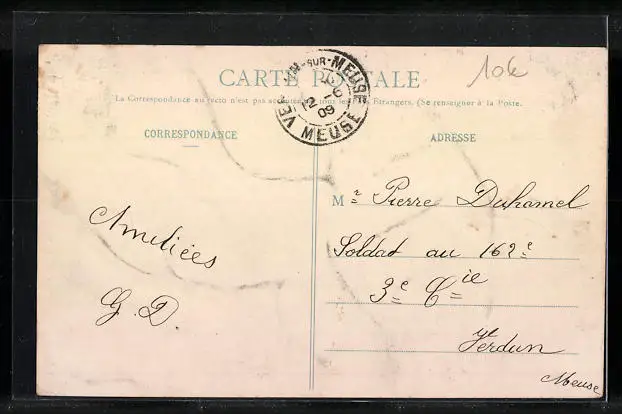 CARTE POSTALE
10€
La Correspondance au recto n'est pas acceptée par tous les Pays Etrangers. (Se renseigner à la Poste.
MEUSE
12 -6
09
MEUSE
CORRESPONDANCE
ADRESSE
Mr Pierre Duhamel
Amitiées
Soldat au 162e
G. D.
3e Cie
Verdun
Meuse